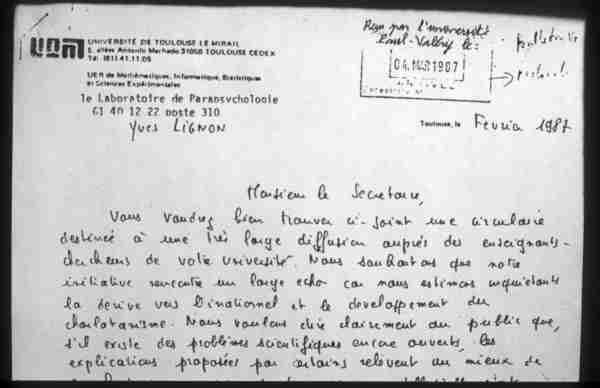 UNIVERSITÉ DE TOULOUSE LE MIRAIL
5, allées Antonio Machado 31058 TOULOUSE CEDEX
Tél. (61) 41.11.05
UER de Mathématiques, Informatique, Statistiques
et Sciences Expérimentales
le Laboratoire de Parapsychologie
61 40 12 22 poste 310
Yves LIGNON
Reçu par l'université
Paul-Valéry le:
04. MAR 1987
Toulouse, le Février 1987
Monsieur le Secretaire,
Vous voudrez bien trouver ci-joint une circulaire
destinée à une très large diffusion auprès des enseignants-
chercheurs de votre université. Nous souhaitons que notre
initiative rencontre un large echo car nous estimons inquiétants
la dérive vers l'irrationnel et le developpement du
charlatanisme. Nous voulons dire clairement au public que,
s'il existe des problèmes scientifiques encore ouverts, les
explications proposées par certains relèvent au mieux de